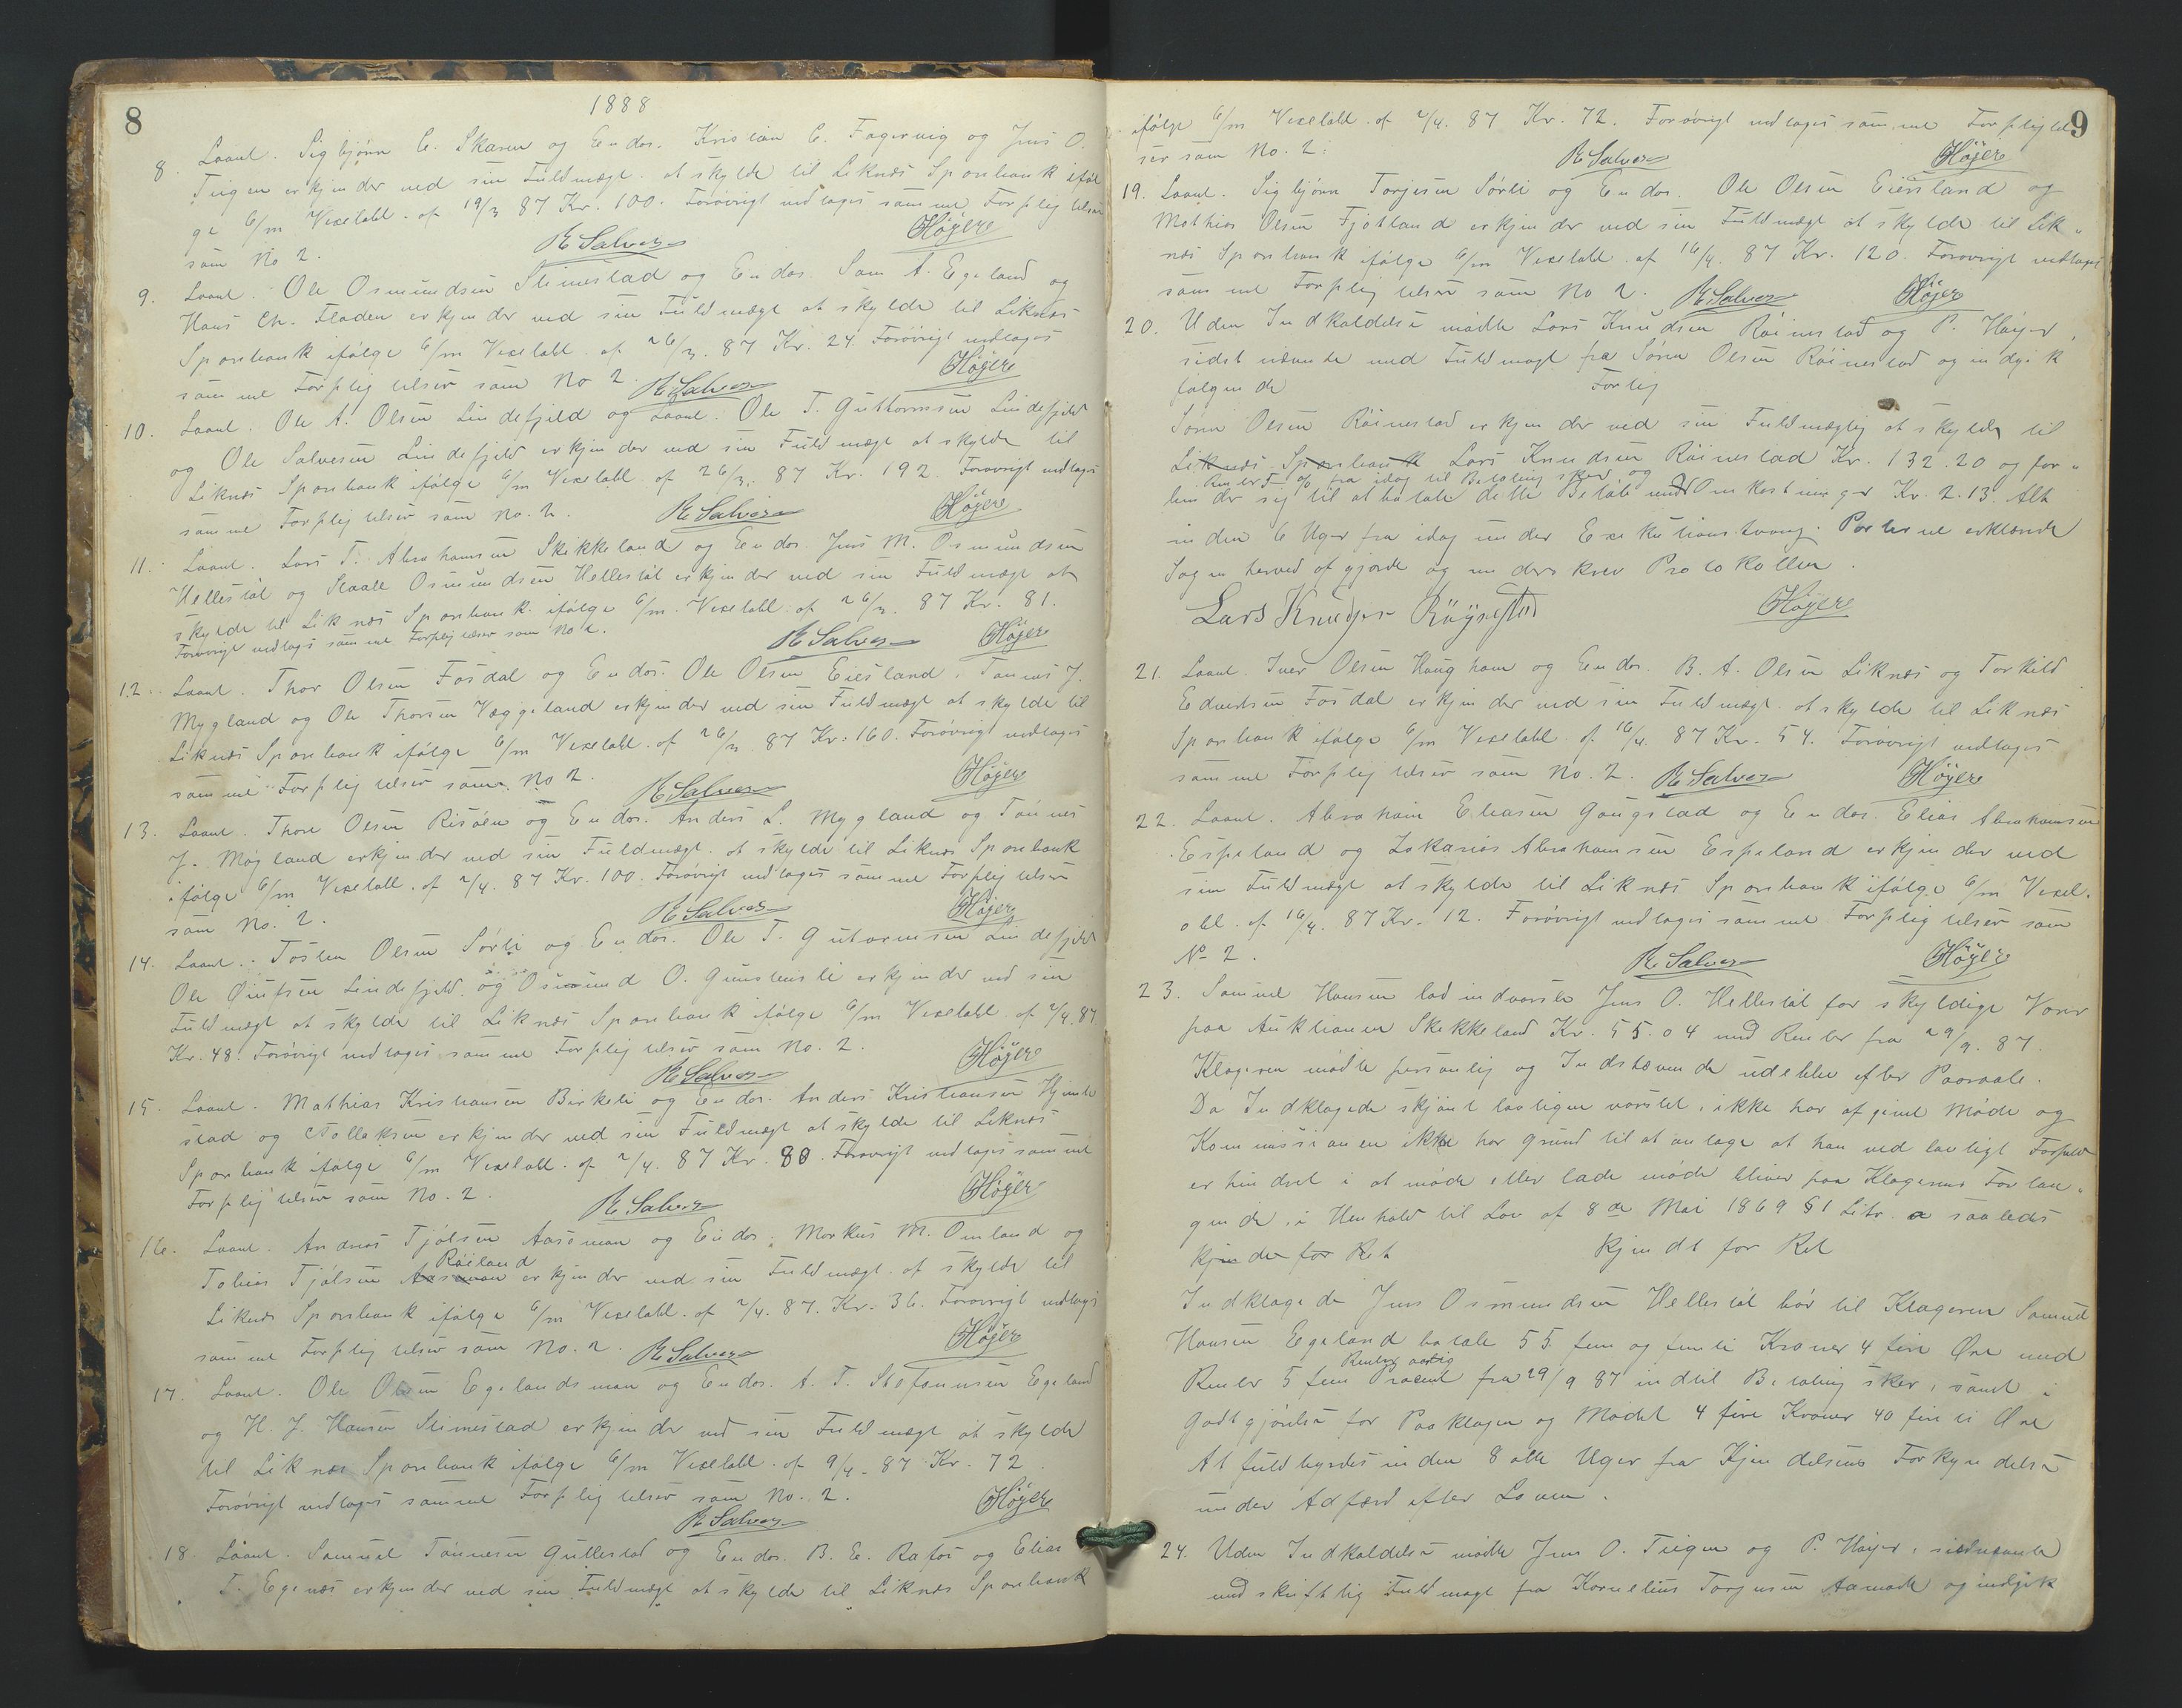 8
1888
8. Laant. Sigbjörn C. Skaren og Endos. Kristian C. Fagervig og Jens O.
Tiigen erkjender ved sin Fuldmægt. at skylde til Liknes Sparebank iföl
ge 6/m Vexelobl. af 19/3 87 Kr. 100. Forövrigt vedtages samme Forpligtelser
som No 2.
R Salvesen Höyer
9. Laant. Ole Osmundsen Stimestad og Endos. Sam A. Egeland og
Hans Chr. Fladen erkjender ved sin Fuldmægt at skylde til Liknes
Sparebank ifölge 6/m Vexelobl. af 26/3. 87 Kr. 24. Forövrigt vedtages
samme Forpligtelser som No 2. R Salvesen Höyer
10. Laant. Ole A. Olsen Lindefjeld og Laant. Ole T. Guttormsen Lindefjeld
og Ole Salvesen Lindefjeld erkjender ved sin Fuldmægt at skylde til
Liknes Sparebank ifölge 6/m Vexelobl. af 26/3. 87 Kr. 192. Forövrigt vedtages
samme Forpligtelser som No. 2. R Salvesen Höyer
11. Laant. Lars T. Abrahamsen Skekkeland og Endos. Jens M. Osmundsen
Helleståt og Staale Osmundsen Hellestöl erkjender ved sin Fuldmægt at
skylde til Liknes Sparebank ifölge 6/m. Vexelobl. af 26/3. 87 Kr. 81.
Forövrigt vedtages samme Forpligtelser som No 2. R Salvesen Höyer
12. Laant. Thor Olsen Fosdal og Endos. Ole Olsen Eiesland, Tönnes J.
Mygland og Ole Thorsen Væggeland erkjender ved sin Fuldmægt at skylde til
Liknes Sparebank ifölge 6/m Vexelobl. af 26/3 87 Kr. 160. Forövrigt vedtages
samme Forpligtelser som No 2. R Salvesen Höyer
13. Laant. Thore Olsen Risöen og Endos. Anders L. Mygland og Tönnes
J. Mögland erkjender ved sin Fuldmægt. at skylde til Liknes Sparebank
ifölge 6/m Vexelobl. af 2/4. 87 Kr. 100. Forövrigt vedtages samme Forpligtelser
som No. 2. R Salvesen Höyer
14. Laant. Tosten Olsen Sörli og Endos. Ole T. Gutormsen Lindefjeld
Ole Omfsen Lindefjeld og Osmund O. Gunstensli erkjender ved sin
Fuldmægt at skylde til Liknes Sparebank ifölge 6/m Vexelobl. af 2/4. 87
Kr. 48. Forövrigt vedtages samme Forpligtelser som No. 2.
R Salvesen Höyer
15. Laant. Mathias Kristiansen Birkeli og Endos. Anders Kristiansen Hjemle
stad og Tolleksen erkjender ved sin Fuldmægt at skylde til Liknes
Sparebank ifölge 6/m Vexelobl. af 2/4. 87 Kr. 80. Forövrigt vedtages samme
Forpligtelser som No. 2. R Salvesen Höyer
16. Laant. Andreas Tjölsen Aaseman og Endos. Markus M. Omland og
Röiland
Tobias Tjölsen Aaseman erkjender ved sin Fuldmægt. at skylde til
Liknes Sparebank ifölge 6/m Vexelobl. af 2/4. 87. Kr. 36. Forövrigt vedtages
samme Forpligtelser som No. 2. R Salvesen Höyer
17. Laant. Ole Olsen Egelandsman og Endos. A. T. Stefansen Egeland
og H. J. Hansen Stimestad erkjender ved sin Fuldmægt at skylde
til Liknes Sparebank ifölge 6/m Vexelobl. af 9/4. 87 Kr. 72.
Forövrigt vedtages samme Forpligtelser som No. 2.
R Salvesen Höyer
18. Laant. Samuel Tönnesen Gullestad og Endos. B. E. Rafos og Elias
T. Egenes erkjender ved sin Fuldmægt at skylde til Liknes Sparebank
9
ifölge 6/m Vexelobl. af 2/4. 87 Kr. 72. Forövrigt vedtages samme Forpligtel
ser som No. 2.
R Salvesen Höyer
19. Laant. Sigbjörn Torjesen Sörli og Endos. Ole Olsen Eiesland og
Mathias Olsen Fjotland erkjender ved sin Fuldmægt at skylde til Lik„
nes Sparebank ifölge 6/m Vexelobl. af 16/4. 87 Kr. 120. Forövrigt vedtages
samme Forpligtelser som No 2. R Salvesen Höyer
20. Uden Indkaldelse mödte Lars Knudsen Röinestad og P. Höyer,
sidstnævnte med Fuldmagt fra Sören Olsen Röinestad og indgik
følgende Forlig
Sören Olsen Röinestad erkjender ved sin Fuldmægtig at skylde til
Liknes Sparebank Lars Knudsen Röinestad Kr. 132.20 og for„
Renter 5 % fra idag til Betaling sker og
binder sig til at betale dette Belöb med Omkostninger Kr. 2.13. Alt
inden 6 Uger fra idag under Exekutionstvang. Parterne erklærede
Sagen hermed afgjordt og underskrev Protokollen.
Lars Knudsen Röynestad Höyer
21. Laant. Iver Olsen Haugham og Endos. B. A. Olsen Liknes og Torkild
Edvardsen Fosdal erkjender ved sin Fuldmægt. at skylde til Liknes
Sparebank ifölge 6/m Vexelobl. af 16/4. 87 Kr. 54. Forövrigt vedtages
samme Forpligtelser som No. 2. R Salvesen Höyer
22. Laant. Abraham Eliasen Gangstad og Endos. Elias Abrahamsen
Espeland og Zakarias Abrahamsen Espeland erkjender ved
sin Fuldmægt at skylde til Liknes Sparebank ifölge 6/m Vexel„
obl. af 16/4. 87 Kr. 12. Forövrigt vedtages samme Forpligtelser som
No 2. R Salvesen Höyer
23. Samuel Hansen lod indvarsle Jens O. Hellestöl for skyldige Varer
paa Auktionen Skekkeland Kr. 55.04 med Renter fra 29/9. 87.
Klageren mödte personlig og Indstævnede udeblev efter Paaraab.
Da Indklagede skjönt lovligen varslet, ikke har afgivet Möde og
Kommissionen ikke har Grund til at antage at han ved lovligt Forfald
er hindret i at möde eller lade möde bliver paa Klagerens Forlan„
gende, i Henhold til Lov af 8de Mai 1869 § 1 Litr. a saaledes
kjendt for Ret Kjendt for Ret
Indklagede Jens Osmundsen Hellestöl bör til Klageren Samuel
Hansen Egeland betale 55 fem og femti Kroner 4 fire Øre med
Renter aarlig
Renter 5 fem Procent fra 29/9 87 indtil Betaling sker, samt i
Godtgjörelse for Paaklagen og Mödet 4 fire Kroner 40 firti Øre
At fuldbyrdes inden 8 otte Uger fra Kjendelsens Forkyndelse
under Adfærd efter Loven.
24. Uden Indkaldelse mödte Jens O. Tiigen og P. Höyer, sidstnævnte
med skriftlig Fuldmagt fra Kornelius Torjesen Aamodt og indgik